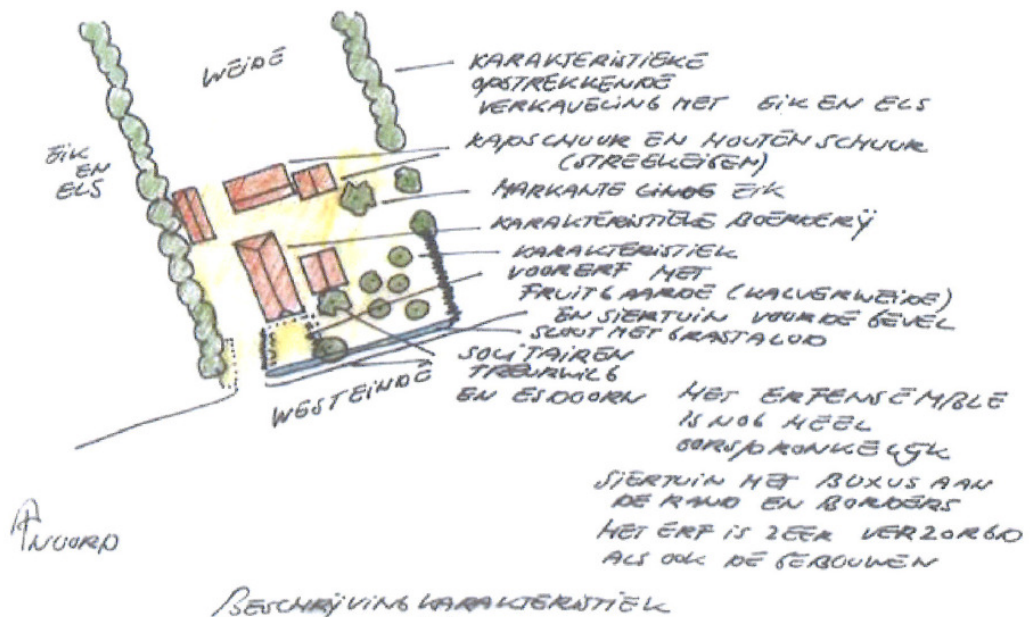 WEIDE
KARAKTERISTIEKE
OPSTREKKENDE
VERKAVELING MET EIK EN ELS
EIK
EN
ELS
KAPSCHUUR EN HOUTEN SCHUUR
(STREEKEIGEN)
MARKANTE LINDE EIK
KARAKTERISTIEKE BOERDERIJ
KARAKTERISTIEK
VOORERF MET
FRUITGAARDE (KALVERWEIDE)
EN SIERTUIN VOOR DE GEVEL
SLOOT MET GRASTALUD
SOLITAIREN
TREURWILG
EN ESDOORN
WESTEINDE
HET ERFENSEMBLE
IS NOG HEEL
OORSPRONKELIJK
SIERTUIN MET BUXUS AAN
DE RAND EN BORDERS
HET ERF IS ZEER VERZORGD
ALS OOK DE GEBOUWEN
NOORD
BESCHRIJVING KARAKTERISTIEK